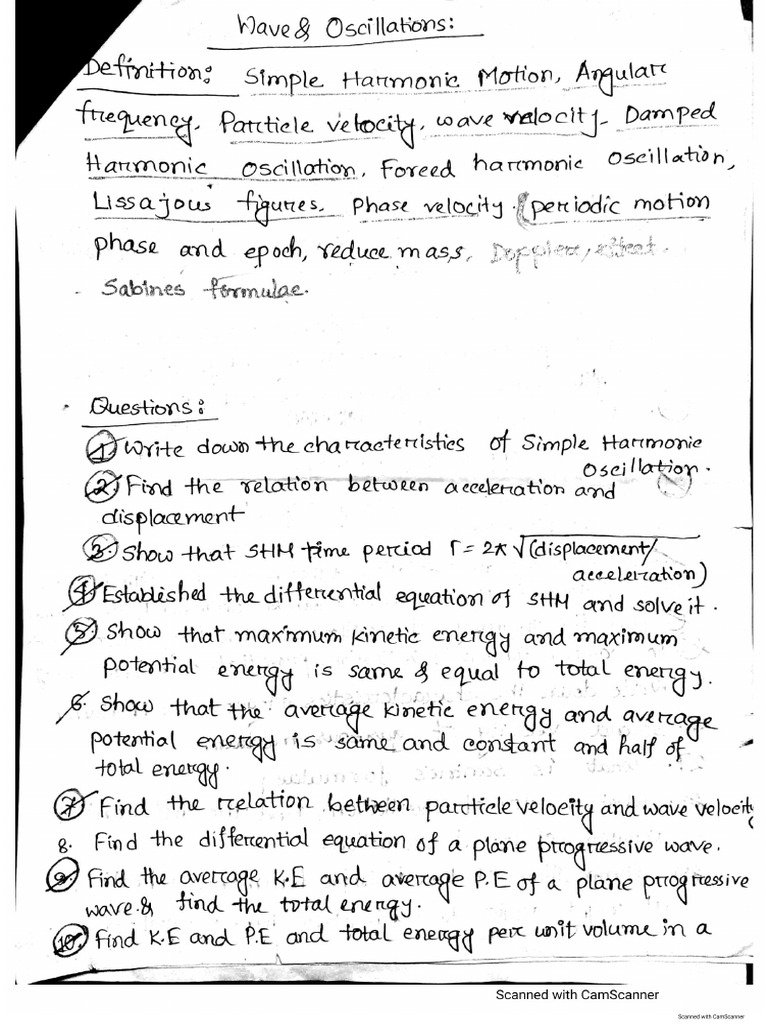 Wave & Oscillations:
Definition: Simple Harmonic Motion, Angular
frequency, Particle velocity, wave velocity. Damped
Harmonic oscillation, Forced harmonic oscillation,
Lissajous figures. Phase velocity. (periodic motion
phase and epoch, reduce mass, Doppler, effect.
Sabines formulae.
Questions:
1. Write down the characteristics of Simple Harmonic
oscillation.
2. Find the relation between acceleration and
displacement
3. Show that SHM time period T = 2π √(displacement/
acceleration)
4. Established the differential equation of SHM and solve it.
5. Show that maximum kinetic energy and maximum
potential energy is same & equal to total energy.
6. Show that the average kinetic energy and average
potential energy is same and constant and half of
total energy.
7. Find the relation between particle velocity and wave velocity
8. Find the differential equation of a plane progressive wave.
9. Find the average K.E and average P.E of a plane progressive
wave & find the total energy.
10. Find K.E and P.E and total energy per unit volume in a
Scanned with CamScanner
Scanned with CamScanner